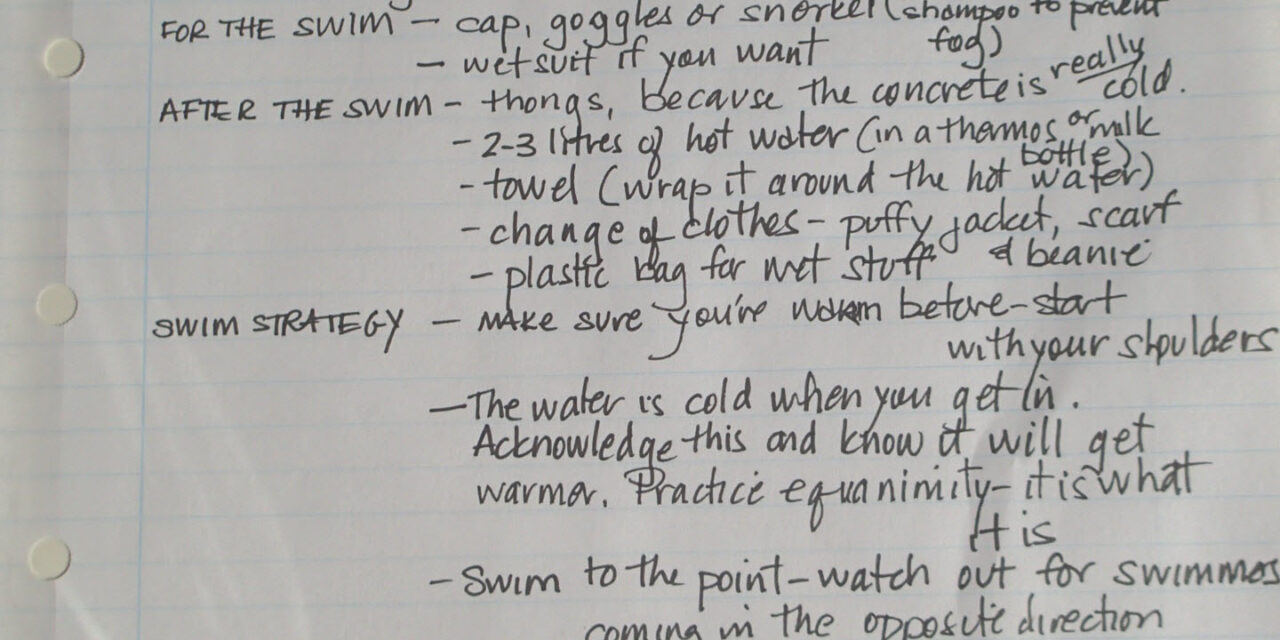 FOR THE SWIM - cap, goggles or snorkel (shampoo to prevent
fog)
- wetsuit if you want
AFTER THE SWIM - thongs, because the concrete is really
cold.
- 2-3 litres of hot water (in a thermos or milk
bottle)
- towel (wrap it around the hot water)
- change of clothes - puffy jacket, scarf
& beanie
- plastic bag for wet stuff
SWIM STRATEGY - MAKE sure you're warm before - start
with your shoulders
- The water is cold when you get in.
Acknowledge this and know it will get
warmer. Practice equanimity - it is what
it is
- Swim to the point - watch out for swimmers
coming in the opposite direction